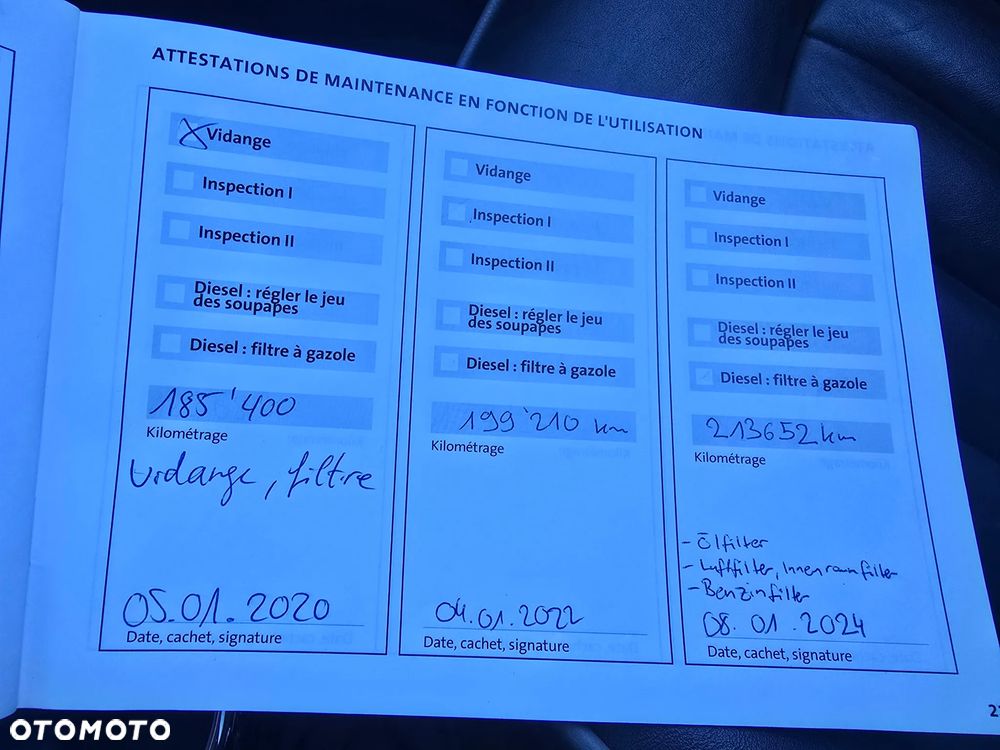 ATTESTATIONS DE MAINTENANCE EN FONCTION DE L'UTILISATION
Vidange
Inspection I
Inspection II
Diesel : régler le jeu
des soupapes
Diesel : filtre à gazole
185'400
Kilométrage
Vidange, filtre
05.01.2020
Date, cachet, signature
Vidange
Inspection I
Inspection II
Diesel : régler le jeu
des soupapes
Diesel : filtre à gazole
199'210 km
Kilométrage
04.01.2022
Date, cachet, signature
Vidange
Inspection I
Inspection II
Diesel : régler le jeu
des soupapes
Diesel : filtre à gazole
213652 km
Kilométrage
- Ölfilter
- Luftfilter, Innenraumfilter
- Benzinfilter
08.01.2024
Date, cachet, signature
OTOMOTO